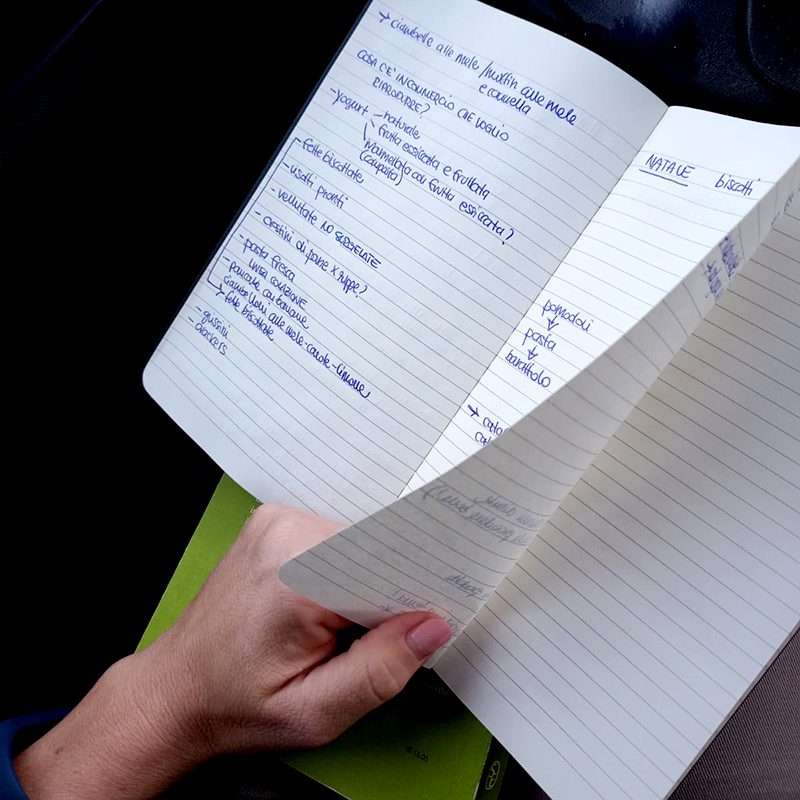 → ciambelle alle mele / muffin alle mele
e cannella
COSA C'È IN COMMERCIO CHE VOGLIO
RIPRODURRE?
- yogurt - naturale
frutta essiccata e frullata
marmellata con frutta essiccata?
(composta)
- fette biscottate
- risotti pronti
- vellutate NO SURGELATE
- crostini di pane x zuppe?
- pasta fresca
LINEA COLAZIONE
- pancake con banane
ciambelloni alle mele-carote-limone
→ fette biscottate
- grissini
- crackers
NATALE biscotti
pomodori
↓
pasta
↓
barattolo
→